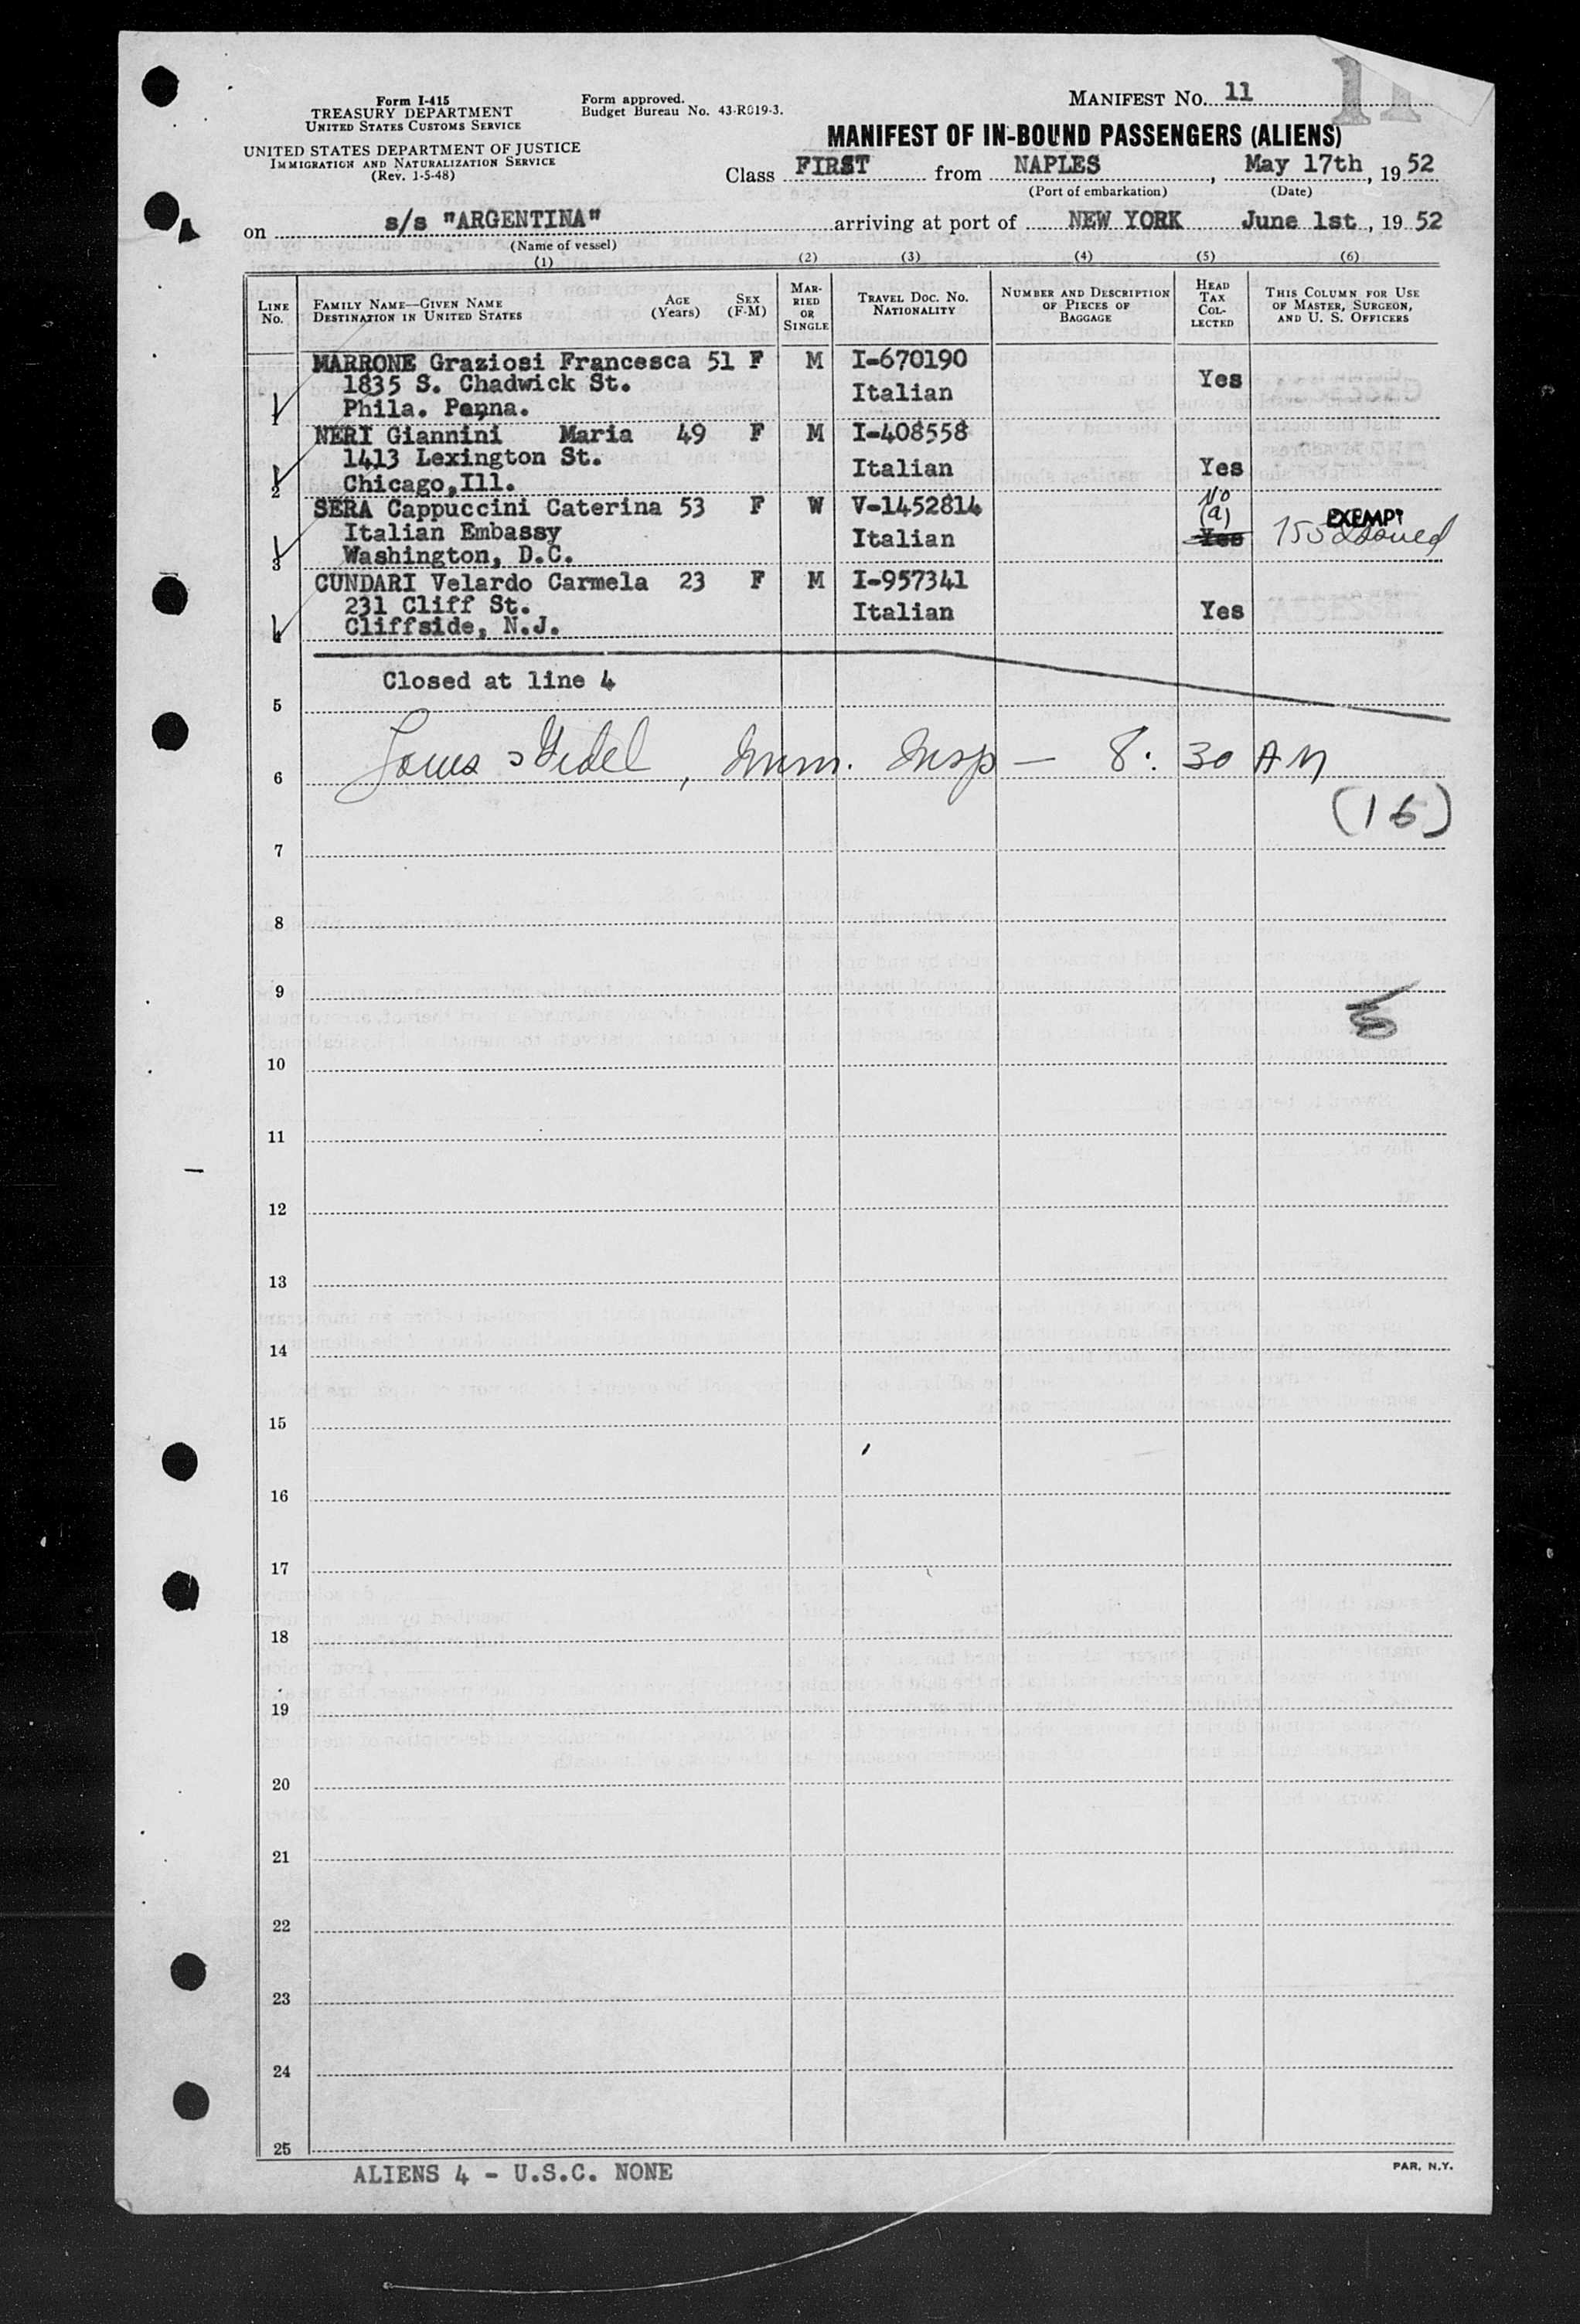 Form I-415
TREASURY DEPARTMENT
UNITED STATES CUSTOMS SERVICE
UNITED STATES DEPARTMENT OF JUSTICE
IMMIGRATION AND NATURALIZATION SERVICE
(Rev. 1-5-48)
Form approved.
Budget Bureau No. 43-R019-3.
MANIFEST NO. 11
11
MANIFEST OF IN-BOUND PASSENGERS (ALIENS)
Class FIRST from NAPLES, May 17th, 19 52
(Port of embarkation) (Date)
on s/s "ARGENTINA" arriving at port of NEW YORK June 1st, 19 52
(Name of vessel)
(1) (2) (3) (4) (5) (6)
LINE No.
FAMILY NAME—GIVEN NAME
DESTINATION IN UNITED STATES
AGE (Years)
SEX (F-M)
MARRIED OR SINGLE
TRAVEL DOC. NO. NATIONALITY
NUMBER AND DESCRIPTION OF PIECES OF BAGGAGE
HEAD TAX COLLECTED
THIS COLUMN FOR USE OF MASTER, SURGEON, AND U. S. OFFICERS
MARRONE Graziosi Francesca 51 F M I-670190
1835 S. Chadwick St. Italian Yes
1 Phila. Penna.
NERI Giannini Maria 49 F M I-408558
1413 Lexington St. Italian Yes
2 Chicago,Ill.
SERA Cappuccini Caterina 53 F W V-1452814 No (a)
Italian Embassy Italian Yes EXEMPT issued
3 Washington, D.C.
CUNDARI Velardo Carmela 23 F M I-957341
231 Cliff St. Italian Yes
4 Cliffside, N.J.
Closed at line 4
5
6 Imm. Insp — 8:30 AM
(16)
7
8
9
10
11
12
13
14
15
16
17
18
19
20
21
22
23
24
25
ALIENS 4 - U.S.C. NONE
PAR, N.Y.